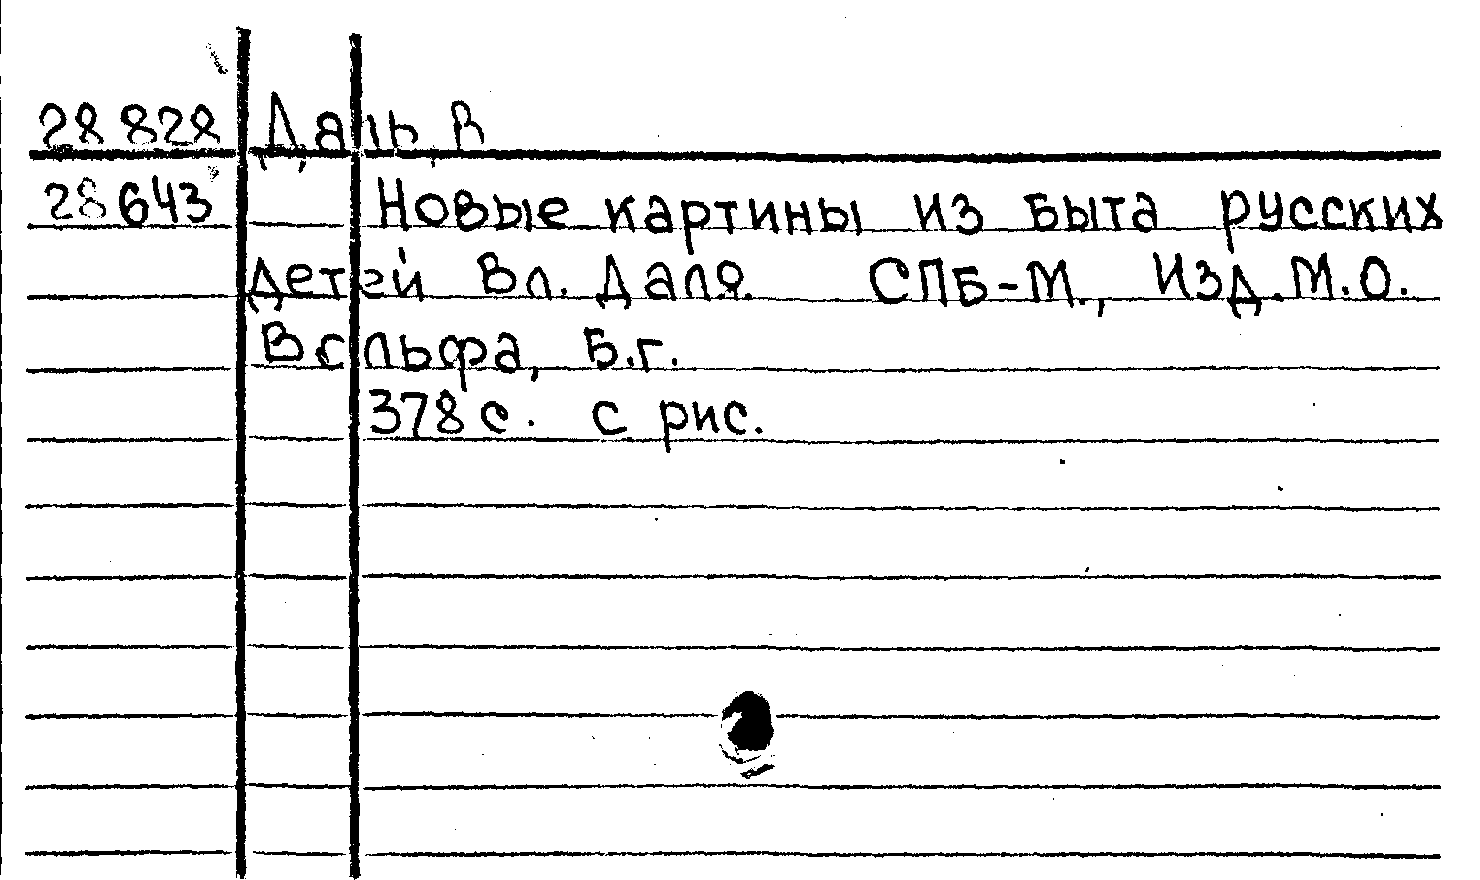 28 828 Даль, В
28 643 Новые картины из быта русских
детей Вл. Даля. СПБ-М., Изд. М.О.
Вольфа, Б.г.
378 с. с рис.